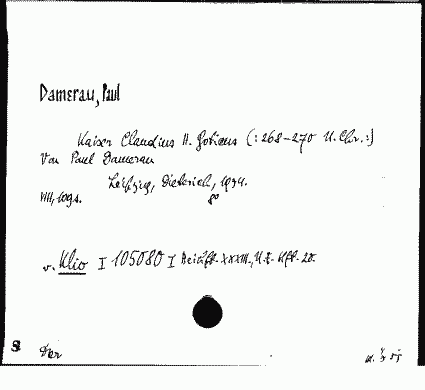 Damerau, Paul
Kaiser Claudius II. Goticus (: 268-270 n. Chr. :)
Von Paul Damerau
Leipzig, Dieterich, 1934.
VIII, 109 S. 8o
v. Klio I 105080 I Beiheft XXXIII, N.F. Hft. 20.
S
Dar